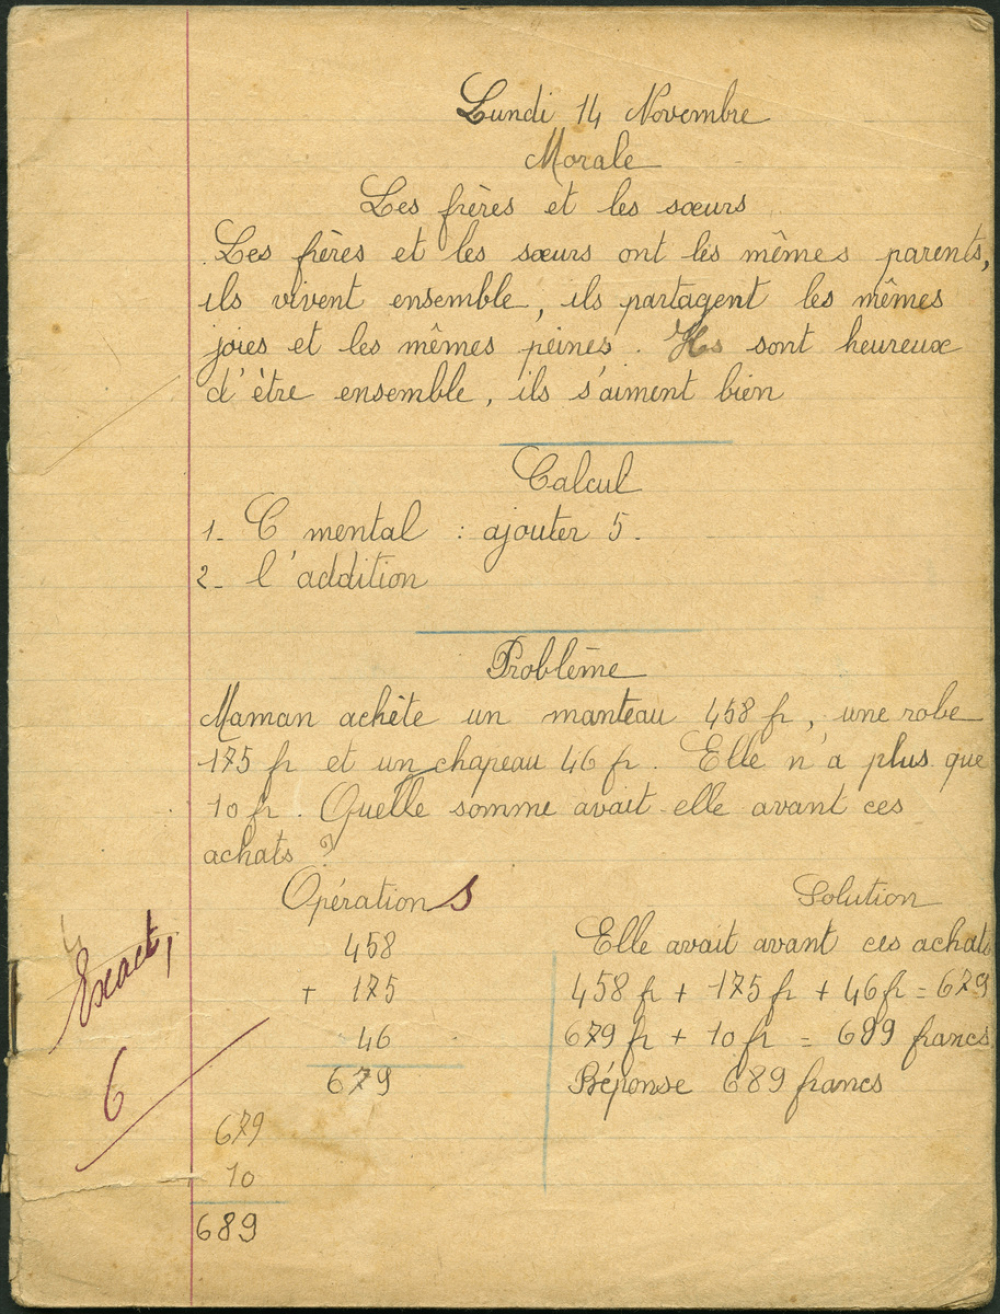 Lundi 14 Novembre
Morale
Les frères et les sœurs
Les frères et les sœurs ont les mêmes parents,
ils vivent ensemble, ils partagent les mêmes
joies et les mêmes peines. Ils sont heureux
d'être ensemble, ils s'aiment bien
Calcul
1. C mental : ajouter 5.
2. l'addition
Problème
Maman achète un manteau 458 fr, une robe
175 fr et un chapeau 46 fr. Elle n'a plus que
10 fr. Quelle somme avait-elle avant ces
achats ?
Opérations
458
+ 175
46
679
679
10
689
Solution
Elle avait avant ces achats
458 fr + 175 fr + 46 fr = 679
679 fr + 10 fr = 689 francs
Réponse 689 francs
Exact,
6